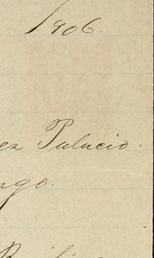 1906.
ez Palacio.
ngo.